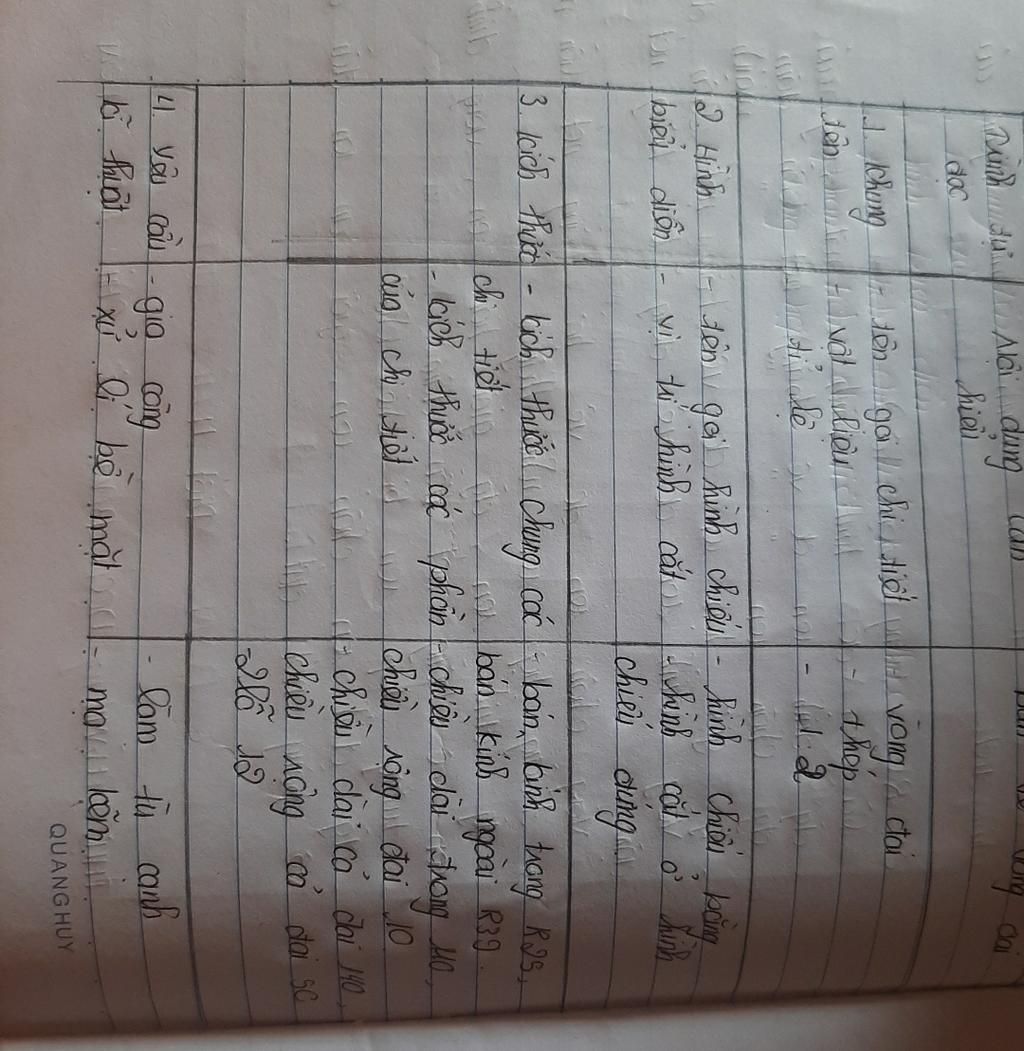 Trình tự
đọc
Nội dung cần
hiểu
Bản vẽ vòng đai
1. Khung
tên
- tên gọi chi tiết
- vật liệu
- tỉ lệ
- vòng đai
- thép
- 1:2
2 Hình
biểu diễn
- tên gọi hình chiếu
- vị trí hình cắt
- hình chiếu bằng
- hình cắt ở hình
chiếu đứng
3. kích thước
- kích thước chung các
chi tiết
- kích thước các phần
của chi tiết
- bán kính trong R25,
bán kính ngoài R39.
- chiều dài trong 110,
chiều rộng đai 10
- chiều dài cả đai 140,
chiều rộng cả đai 50
- 2 lỗ 12
4. Yêu cầu
kĩ thuật
- gia công
- xử lí bề mặt
- làm tù cạnh
- mạ kẽm
QUANG HUY